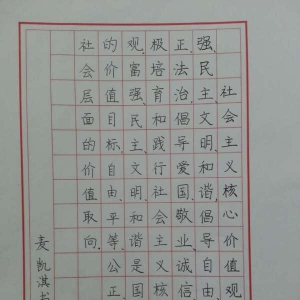 社会主义核心价值观
强、民主、文明、和谐、倡导自由、
正、法治、倡导爱国、敬业、诚信
极培育和践行社会主义核
观、富强、民主文明和谐是国
的价值目标、自由、平等、公正
社会层面的价值取向、
麦凯淇书